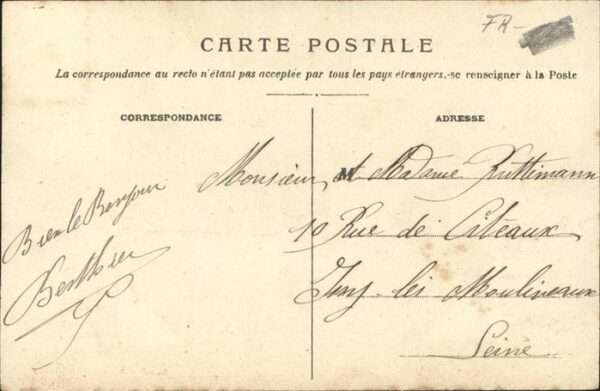 FR-
CARTE POSTALE
La correspondance au recto n'étant pas acceptée par tous les pays étrangers.-se renseigner à la Poste
CORRESPONDANCE
ADRESSE
Monsieur et Madame Ruttimann
10 Rue de Citeaux
Issy-les Moulineaux
Seine
Bien le Bonjour
Berthier